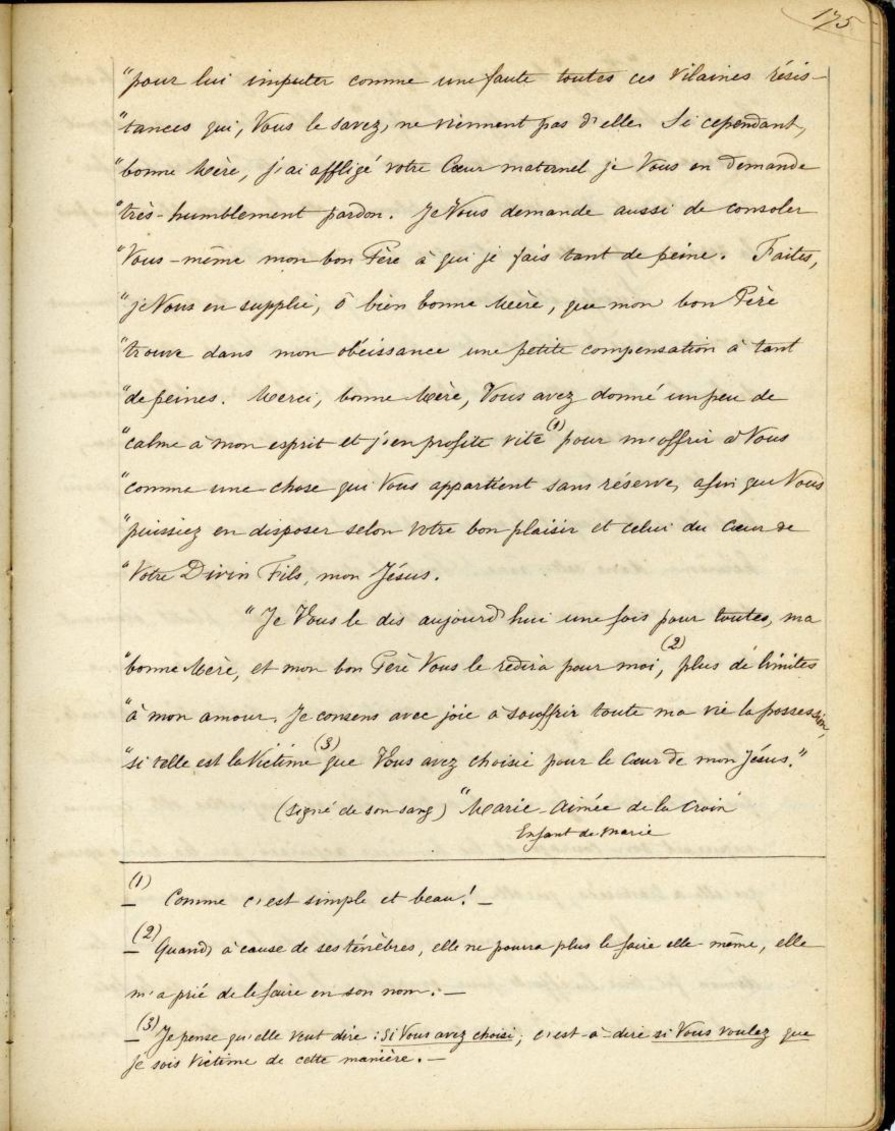 175
"pour lui imputer comme une faute toutes ces vilaines résis-
"tances qui, Vous le savez, ne viennent pas d'elle. Si cependant,
"bonne Mère, j'ai affligé votre Cœur maternel je Vous en demande
"très-humblement pardon. Je Vous demande aussi de consoler
"Vous-même mon bon Père à qui je fais tant de peine. Faites,
"je Vous en supplie, ô bien bonne Mère, que mon bon Père
"trouve dans mon obéissance une petite compensation à tant
"de peines. Merci, bonne Mère, Vous avez donné un peu de
"calme à mon esprit et j'en profite vite (1) pour m'offrir à Vous
"comme une chose qui Vous appartient sans réserve, afin que Vous
"puissiez en disposer selon votre bon plaisir et celui du Cœur de
"Votre Divin Fils, mon Jésus.
"Je Vous le dis aujourd'hui une fois pour toutes, ma
"bonne Mère, et mon bon Père Vous le redira pour moi, (2) plus de limites
"à mon amour. Je consens avec joie à souffrir toute ma vie la possession,
"si telle est la Victime (3) que Vous avez choisie pour le Cœur de mon Jésus."
(Signé de son sang) "Marie-Aimée de la Croix
Enfant de Marie
(1) Comme c'est simple et beau! _
(2) Quand, à cause de ses ténèbres, elle ne pourra plus le faire elle-même, elle
m'a prié de le faire en son nom. _
(3) Je pense qu'elle veut dire : si Vous avez choisi ; c'est-à-dire si Vous voulez que
je sois Victime de cette manière. _